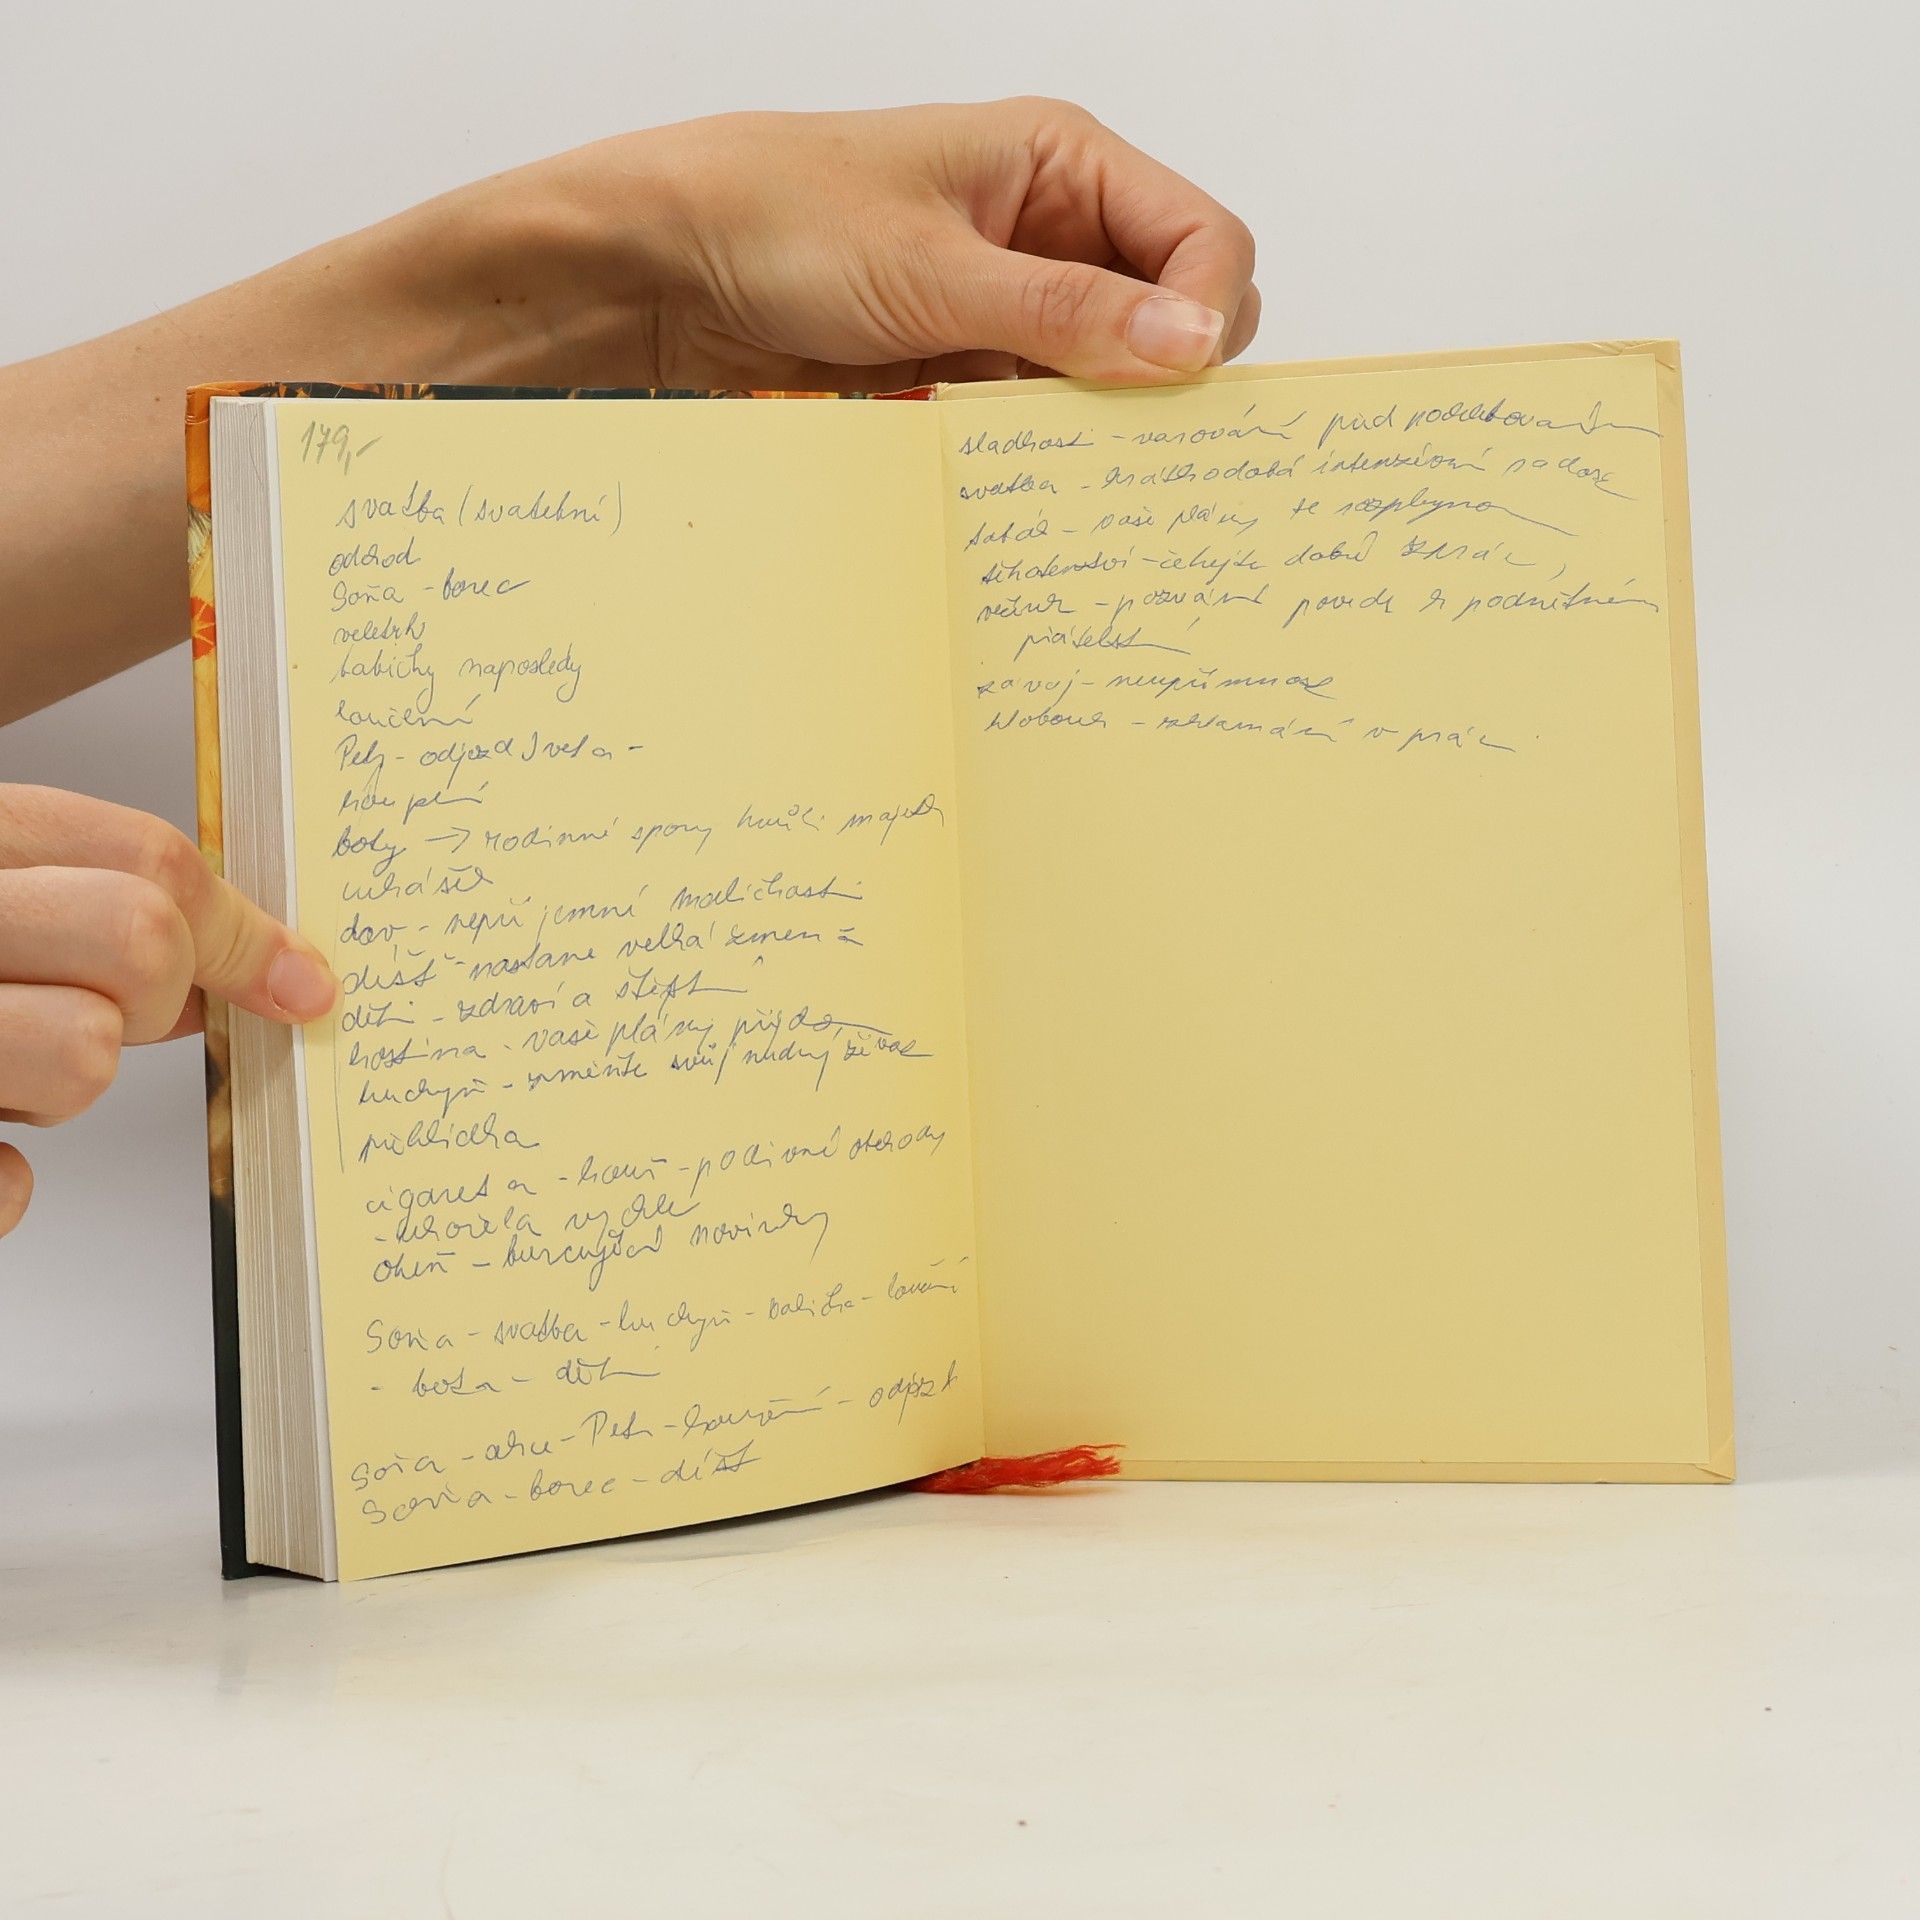 179,-
svatba (svatební)
odchod
Soňa - borec
veletrh
babičky naposledy
loučení
Petr - odjezd Iveta -
koupení
boty → rodinné spory kvůli majetku
cukrášek
dav - nepříjemní maličkosti
déšť - nastane velká změna
děti - zdraví a štěstí
hostina - vaše plány přijdou
kuchyň - změňte svůj nudný život
přehlídka
cigareta - kouř - podivné
- uhořela rychle
oheň - burcující novinky
Soňa - svatba - kuchyň - babička - loučení
- bota - děti
Soňa - - Petr - - odjezd
Soňa - borec - déšť
sladkosti - varování před podceňováním
svatba - krátkodobá intenzivní radost
- vaše plány se rozplynou
těhotenství - čekejte dobré zprávy
večírek - pozvání povede k podnětnému
přátelství
závoj - neupřímnost
klobouk - zklamání v práci